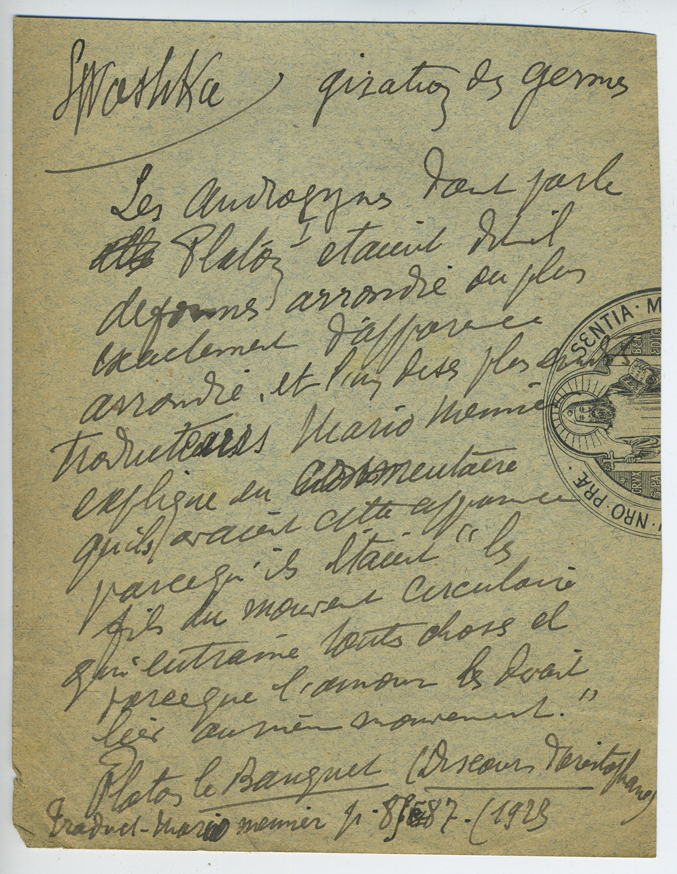 Swastika, giration des germes
Les androgynes dont parle
Platon étaient dit il
de formes arrondie ou plus
exactement d'apparence
arrondie, et l'un des plus
traducteurs Mario Meunier
explique en commentaire
qu'ils avaient cette apparence
parcequ'ils étaient "les
fils du mouvent circulaire
qui entraine touts chose et
parceque l'amour les devait
lier au mouvement."
Platon le Banquet (Discours d'Aristophane)
Traduct- Mario meunier p. 87. (1923
SENTIA · M
NRO · PRÆ